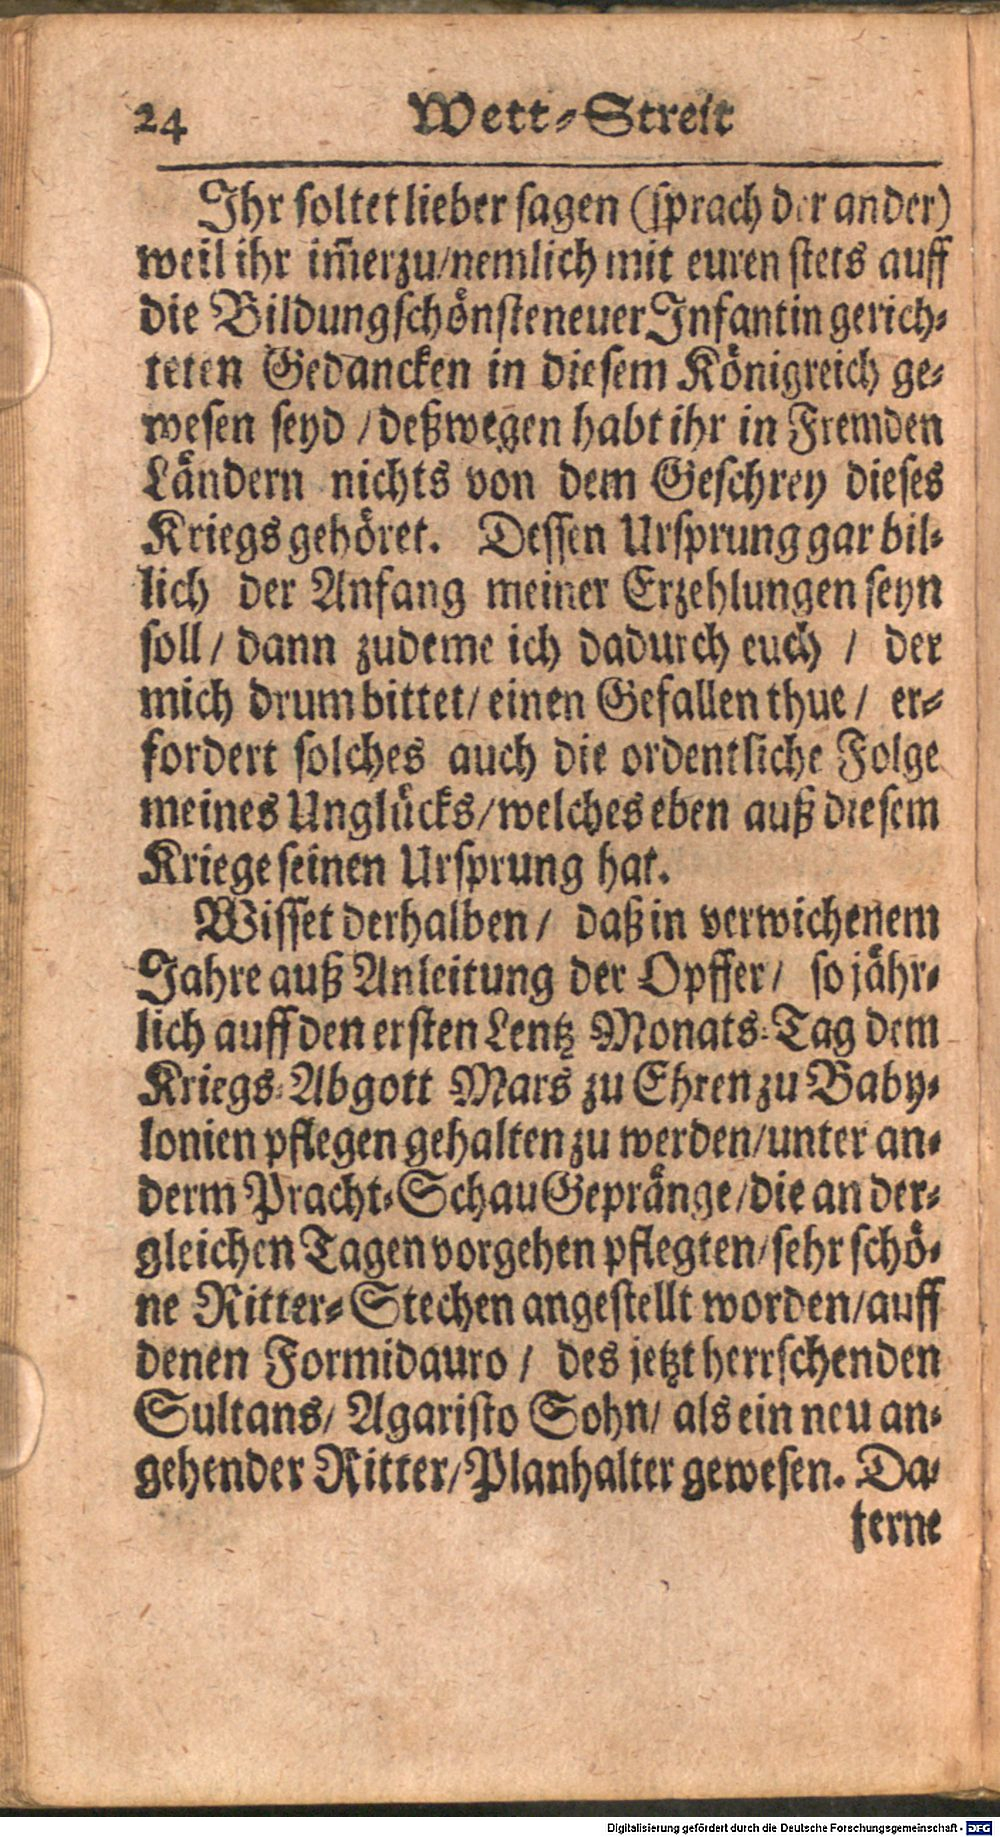 24 Wett-Streit
Ihr soltet lieber sagen (sprach der ander)
weil ihr im̃erzu/nemlich mit euren stets auff
die Bildung schönsteneuer Infantin gerich-
teten Gedancken in diesem Königreich ge-
wesen seyd / deßwegen habt ihr in Fremden
Ländern nichts von dem Geschrey dieses
Kriegs gehöret. Dessen Ursprung gar bil-
lich der Anfang meiner Erzehlungen seyn
soll / dann zudeme ich dadurch euch / der
mich drum bittet/ einen Gefallen thue / er-
fordert solches auch die ordentliche Folge
meines Unglücks/welches eben auß diesem
Kriege seinen Ursprung hat.
Wisset derhalben / daß in verwichenem
Jahre auß Anleitung der Opffer/ so jähr-
lich auff den ersten Lentz Monats-Tag dem
Kriegs-Abgott Mars zu Ehren zu Baby-
lonien pflegen gehalten zu werden/unter an-
derm Pracht-Schau Gepränge/die an der-
gleichen Tagen vorgehen pflegten/sehr schö-
ne Ritter-Stechen angestellt worden/auff
denen Formidauro / des jetzt herrschenden
Sultans/ Agaristo Sohn/ als ein neu an-
gehender Ritter/Planhalter gewesen. Da-
ferne
Digitalisierung gefördert durch die Deutsche Forschungsgemeinschaft - DFG